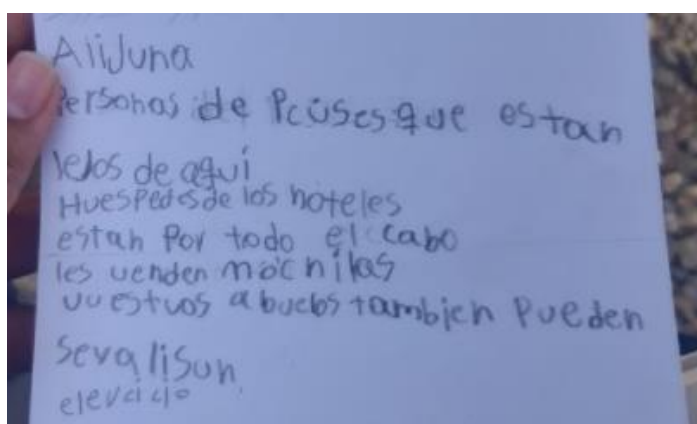 Alijuna
Personas de Pcises que estan
lejos de aquí
Huespedes de los hoteles
estan Por todo el cabo
les venden mochilas
vuestvos abuelos tambien Pueden
ser alijun